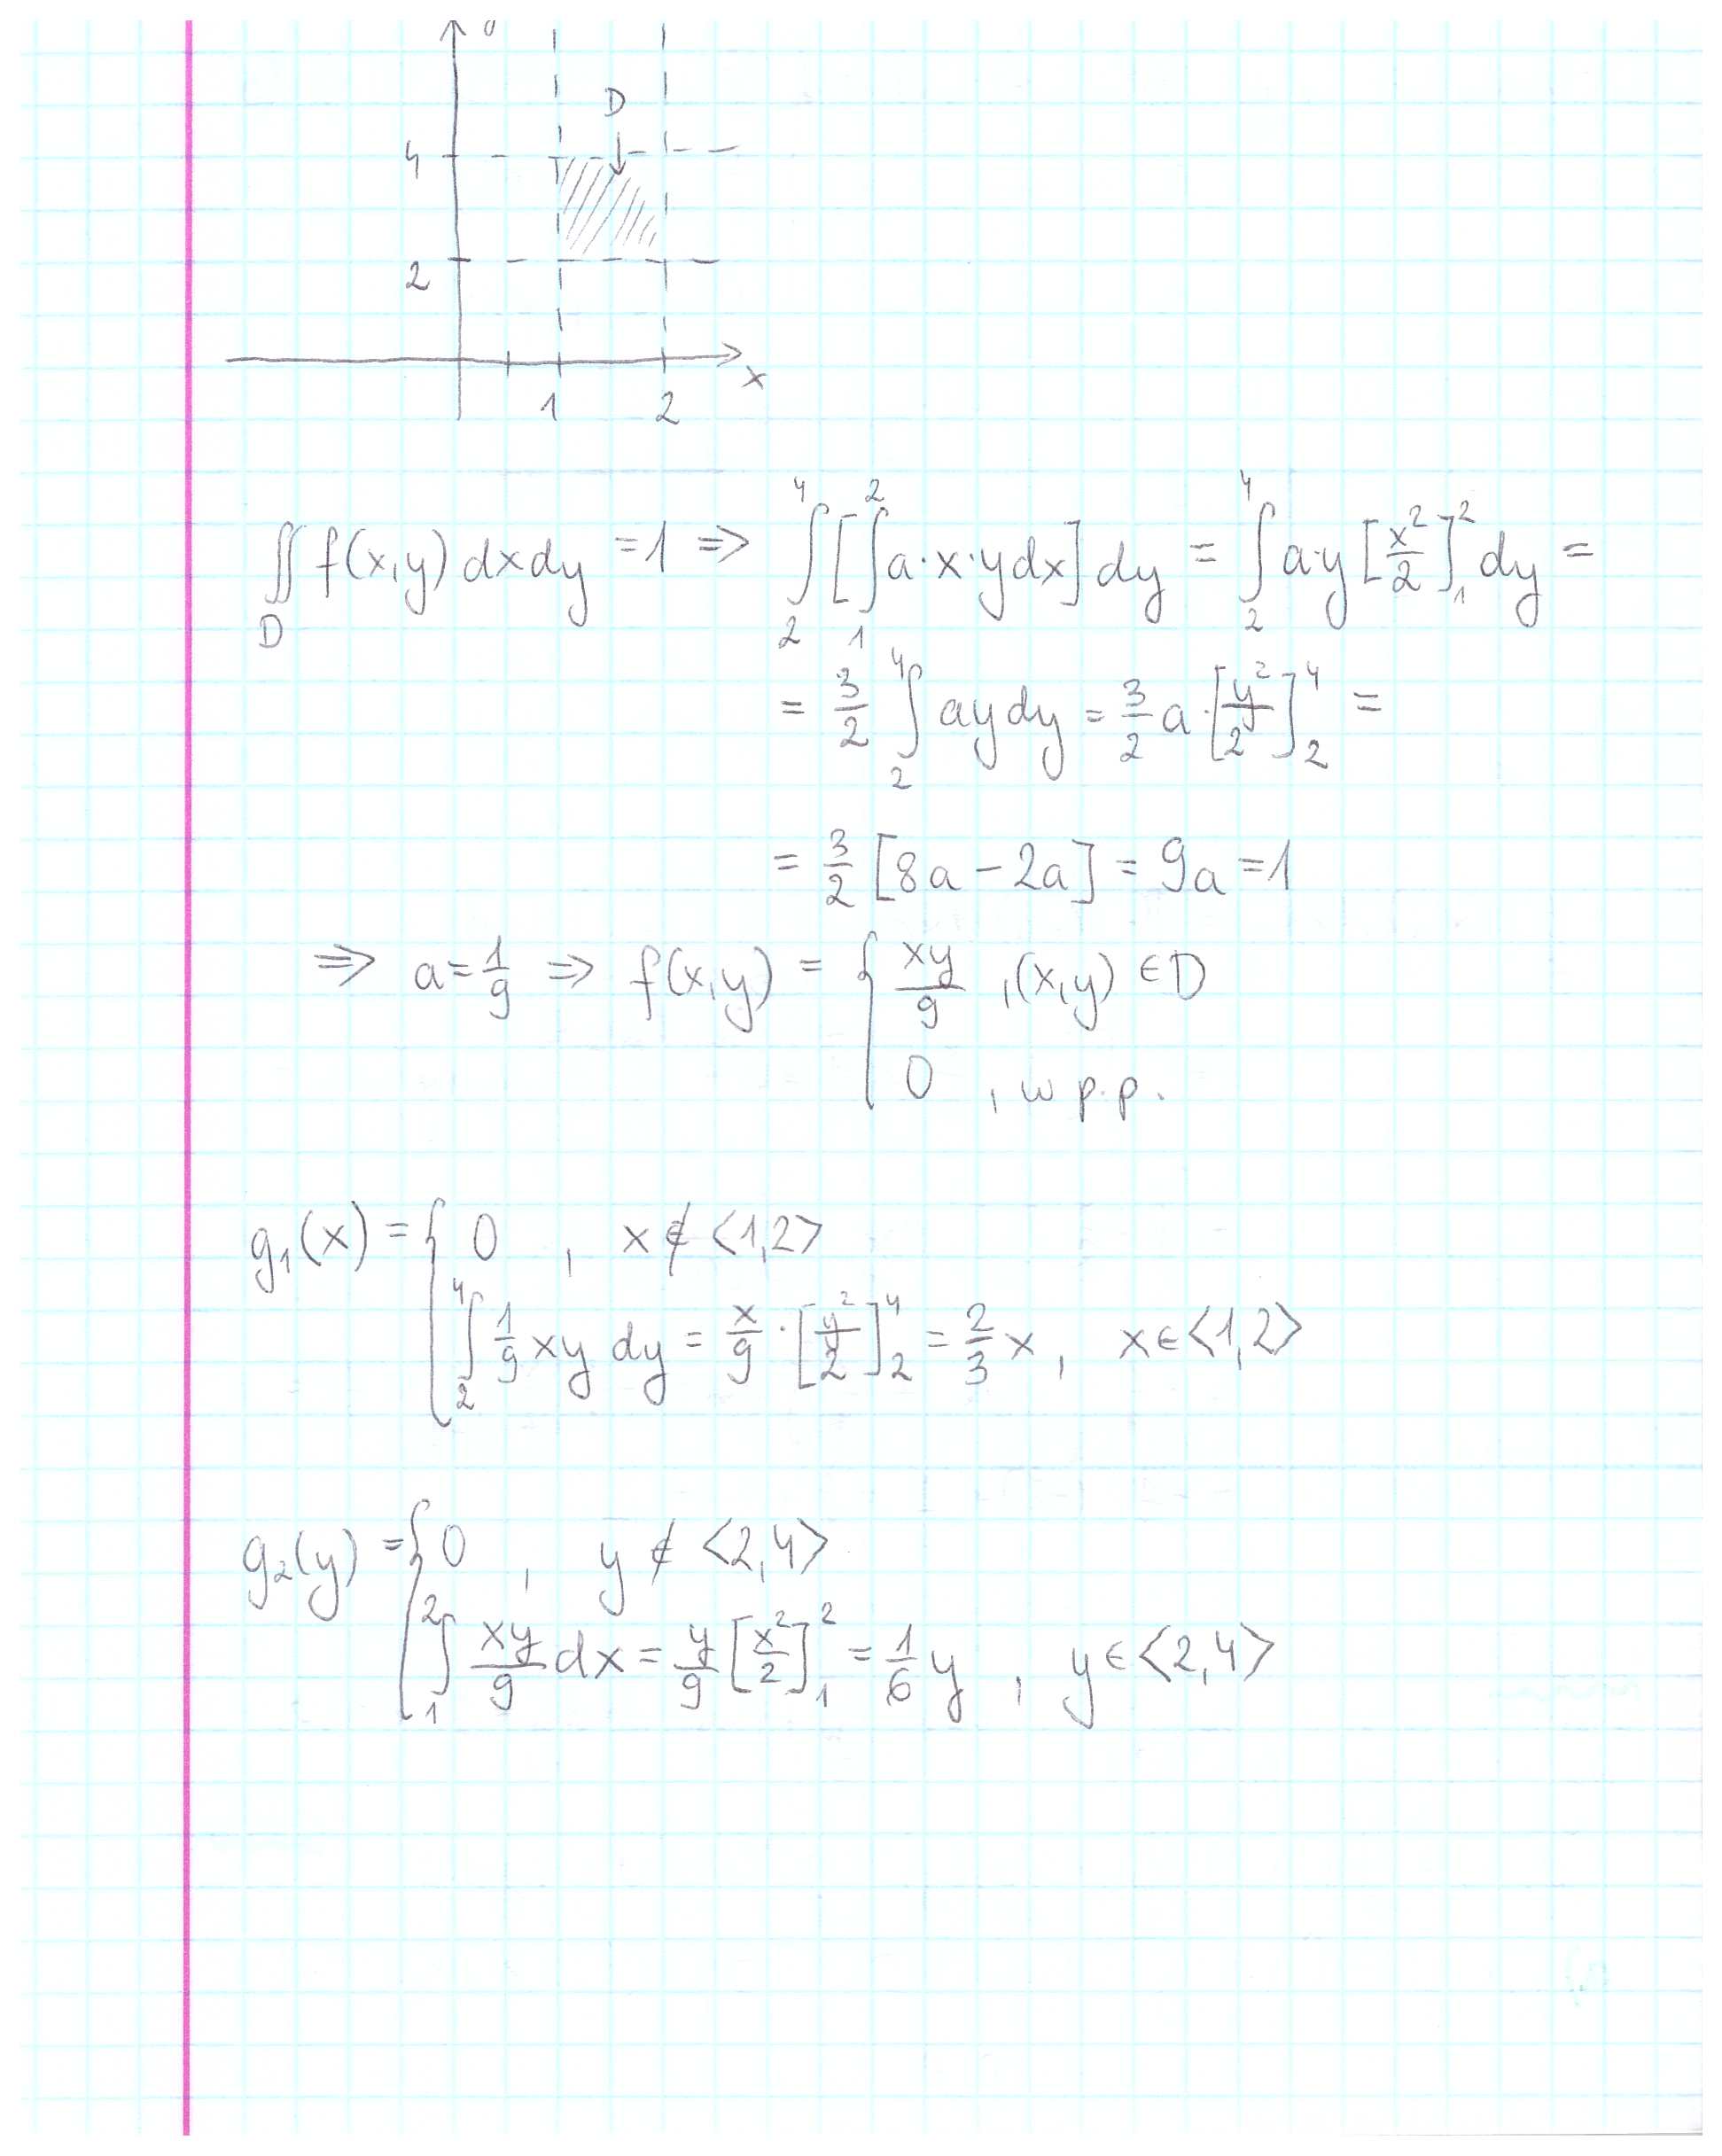 D
4
2
x
1 2
∬_D f(x,y) dxdy = 1 ⇒ ∫_2^4 [∫_1^2 a·x·y dx] dy = ∫_2^4 a·y [x²/2]_1^2 dy =
= 3/2 ∫_2^4 ay dy = 3/2 a · [y²/2]_2^4 =
= 3/2 [8a - 2a] = 9a = 1
⇒ a = 1/9 ⇒ f(x,y) = { xy/9 , (x,y) ∈ D
0 , w p.p.
g₁(x) = { 0 , x ∉ <1,2>
∫_2^4 1/9 xy dy = x/9 · [y²/2]_2^4 = 2/3 x , x ∈ <1,2>
g₂(y) = { 0 , y ∉ <2,4>
∫_1^2 xy/9 dx = y/9 [x²/2]_1^2 = 1/6 y , y ∈ <2,4>